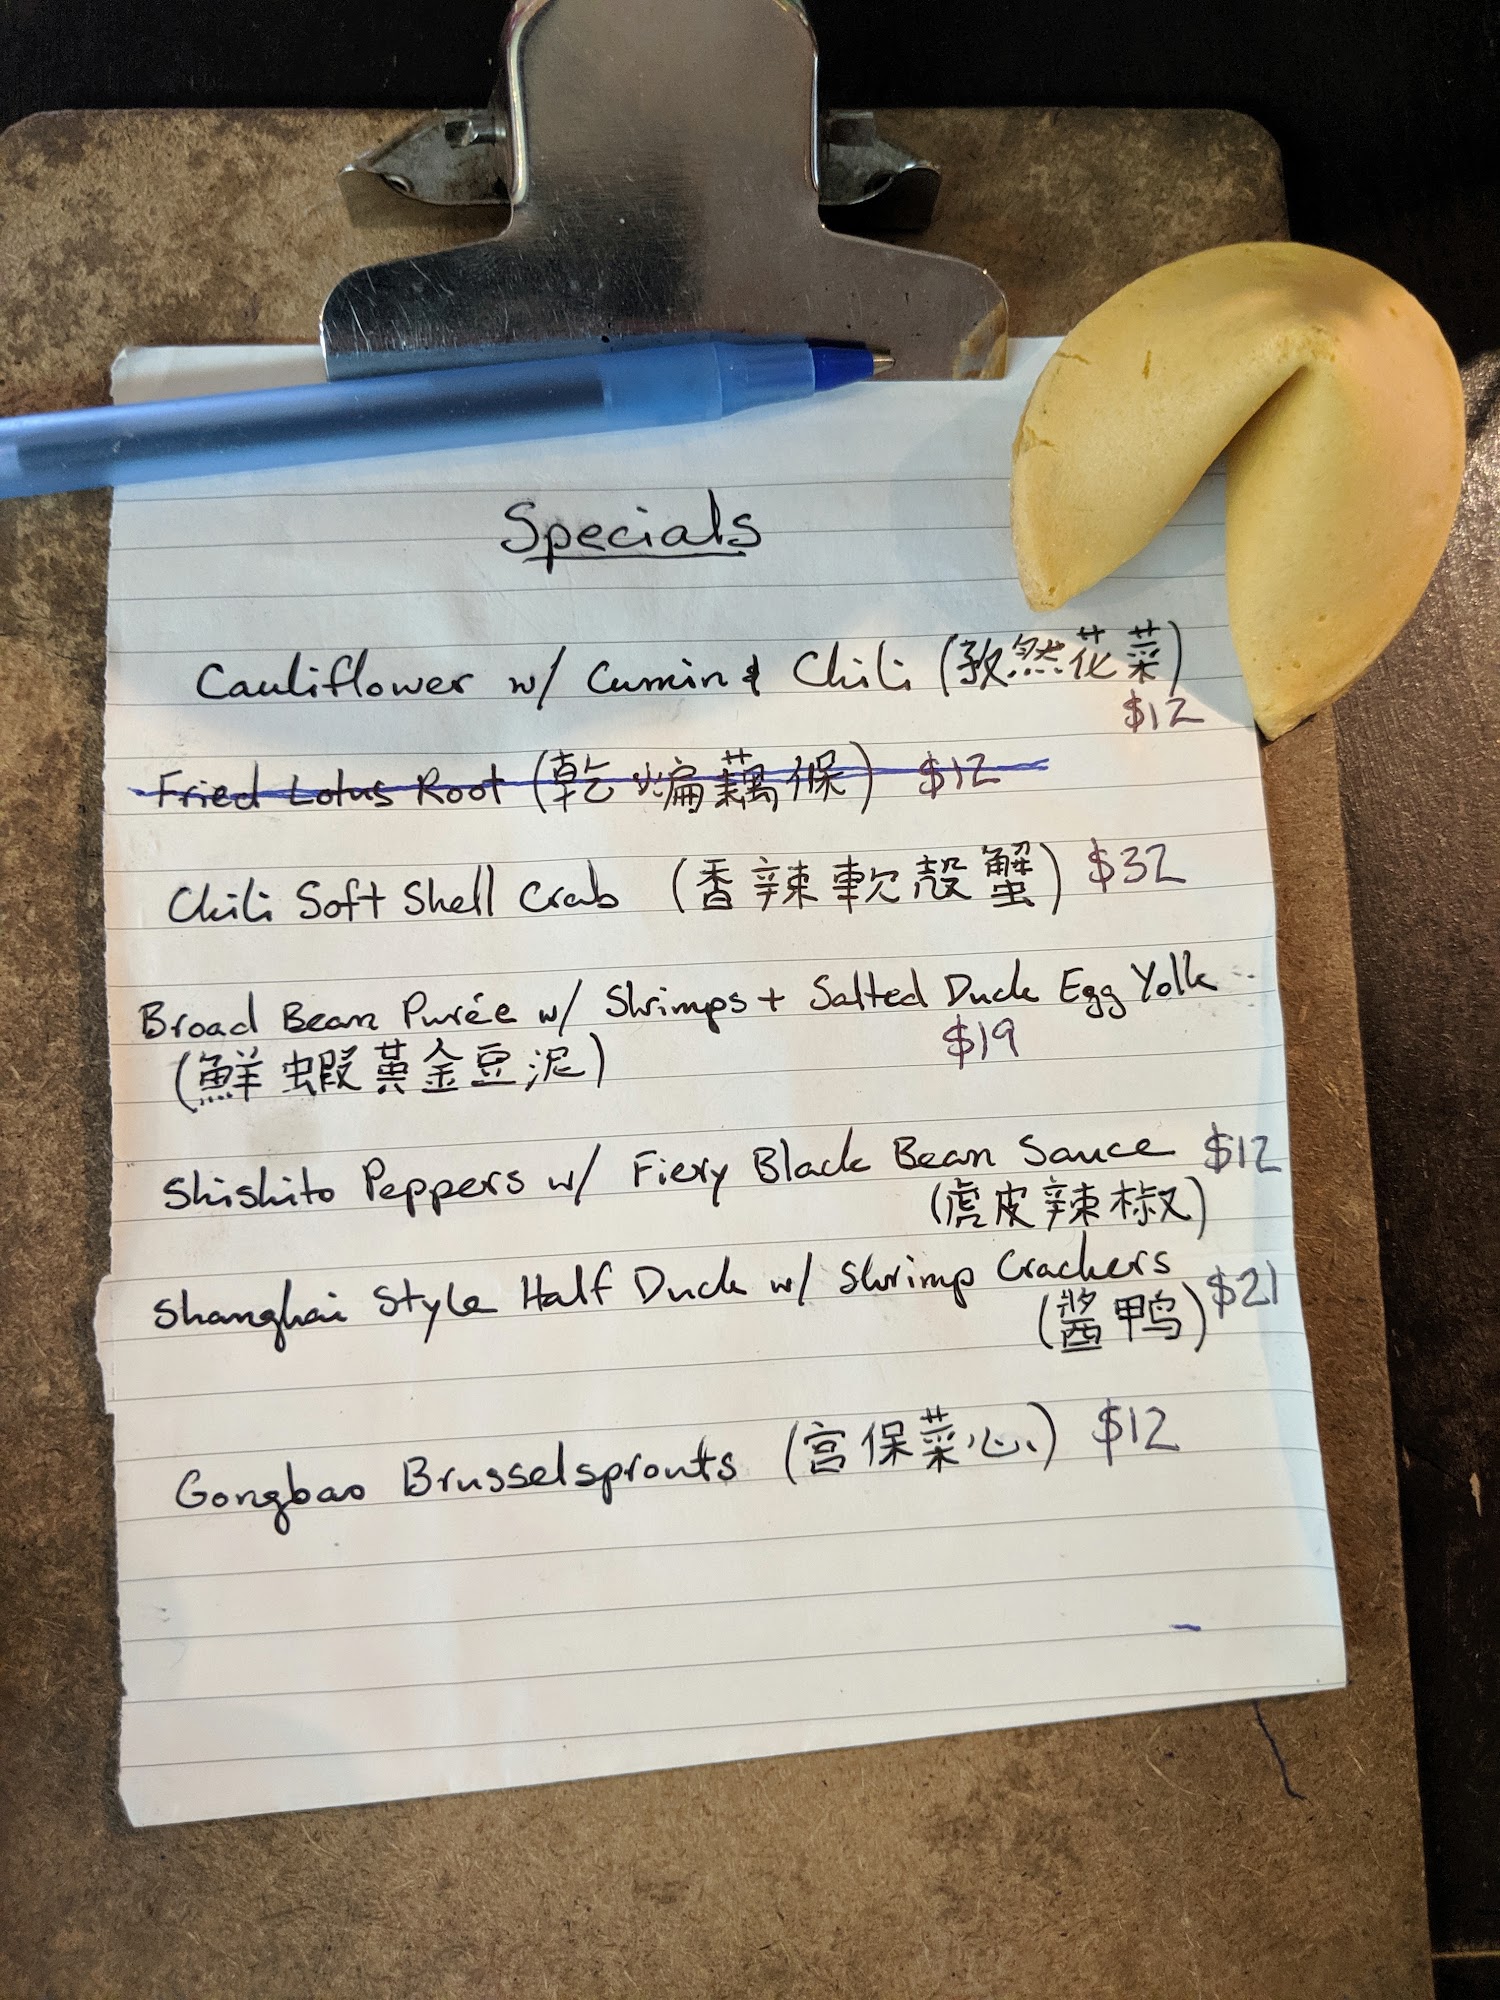 Specials
Cauliflower w/ Cumin & Chili (孜然花菜)
$12
Fried Lotus Root (乾煸藕條) $12
Chili Soft Shell Crab (香辣軟殼蟹) $32
Broad Bean Purée w/ Shrimps + Salted Duck Egg Yolk
$19
(鮮蝦黃金豆泥)
Shishito Peppers w/ Fiery Black Bean Sauce $12
(虎皮辣椒)
Shanghai Style Half Duck w/ Shrimp Crackers
(醬鸭) $21
Gongbao Brusselsprouts (宫保菜心) $12